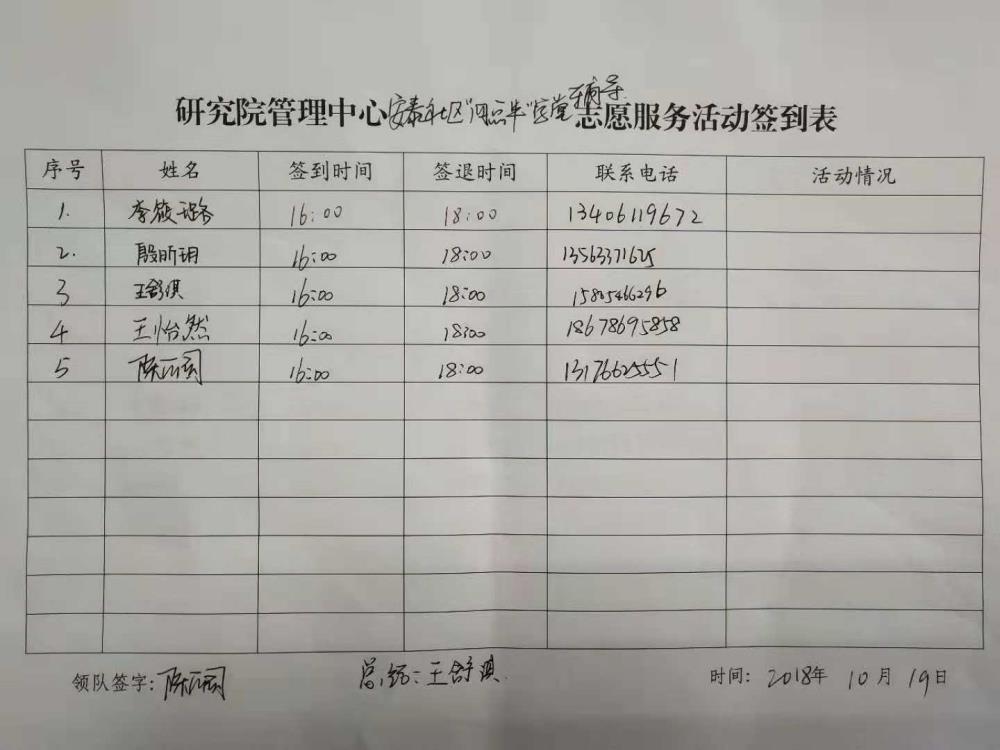 研究院管理中心安泰社区"四点半"课堂辅导志愿服务活动签到表
序号 姓名 签到时间 签退时间 联系电话 活动情况
1. 李筱璐 16:00 18:00 13406119672
2. 殷昕玥 16:00 18:00 13563371625
3 王舒淇 16:00 18:00 15805466296
4 王怡然 16:00 18:00 18678695858
5 陈 16:00 18:00 13176625551
领队签字: 陈 总结: 王舒淇 时间: 2018年 10月 19日